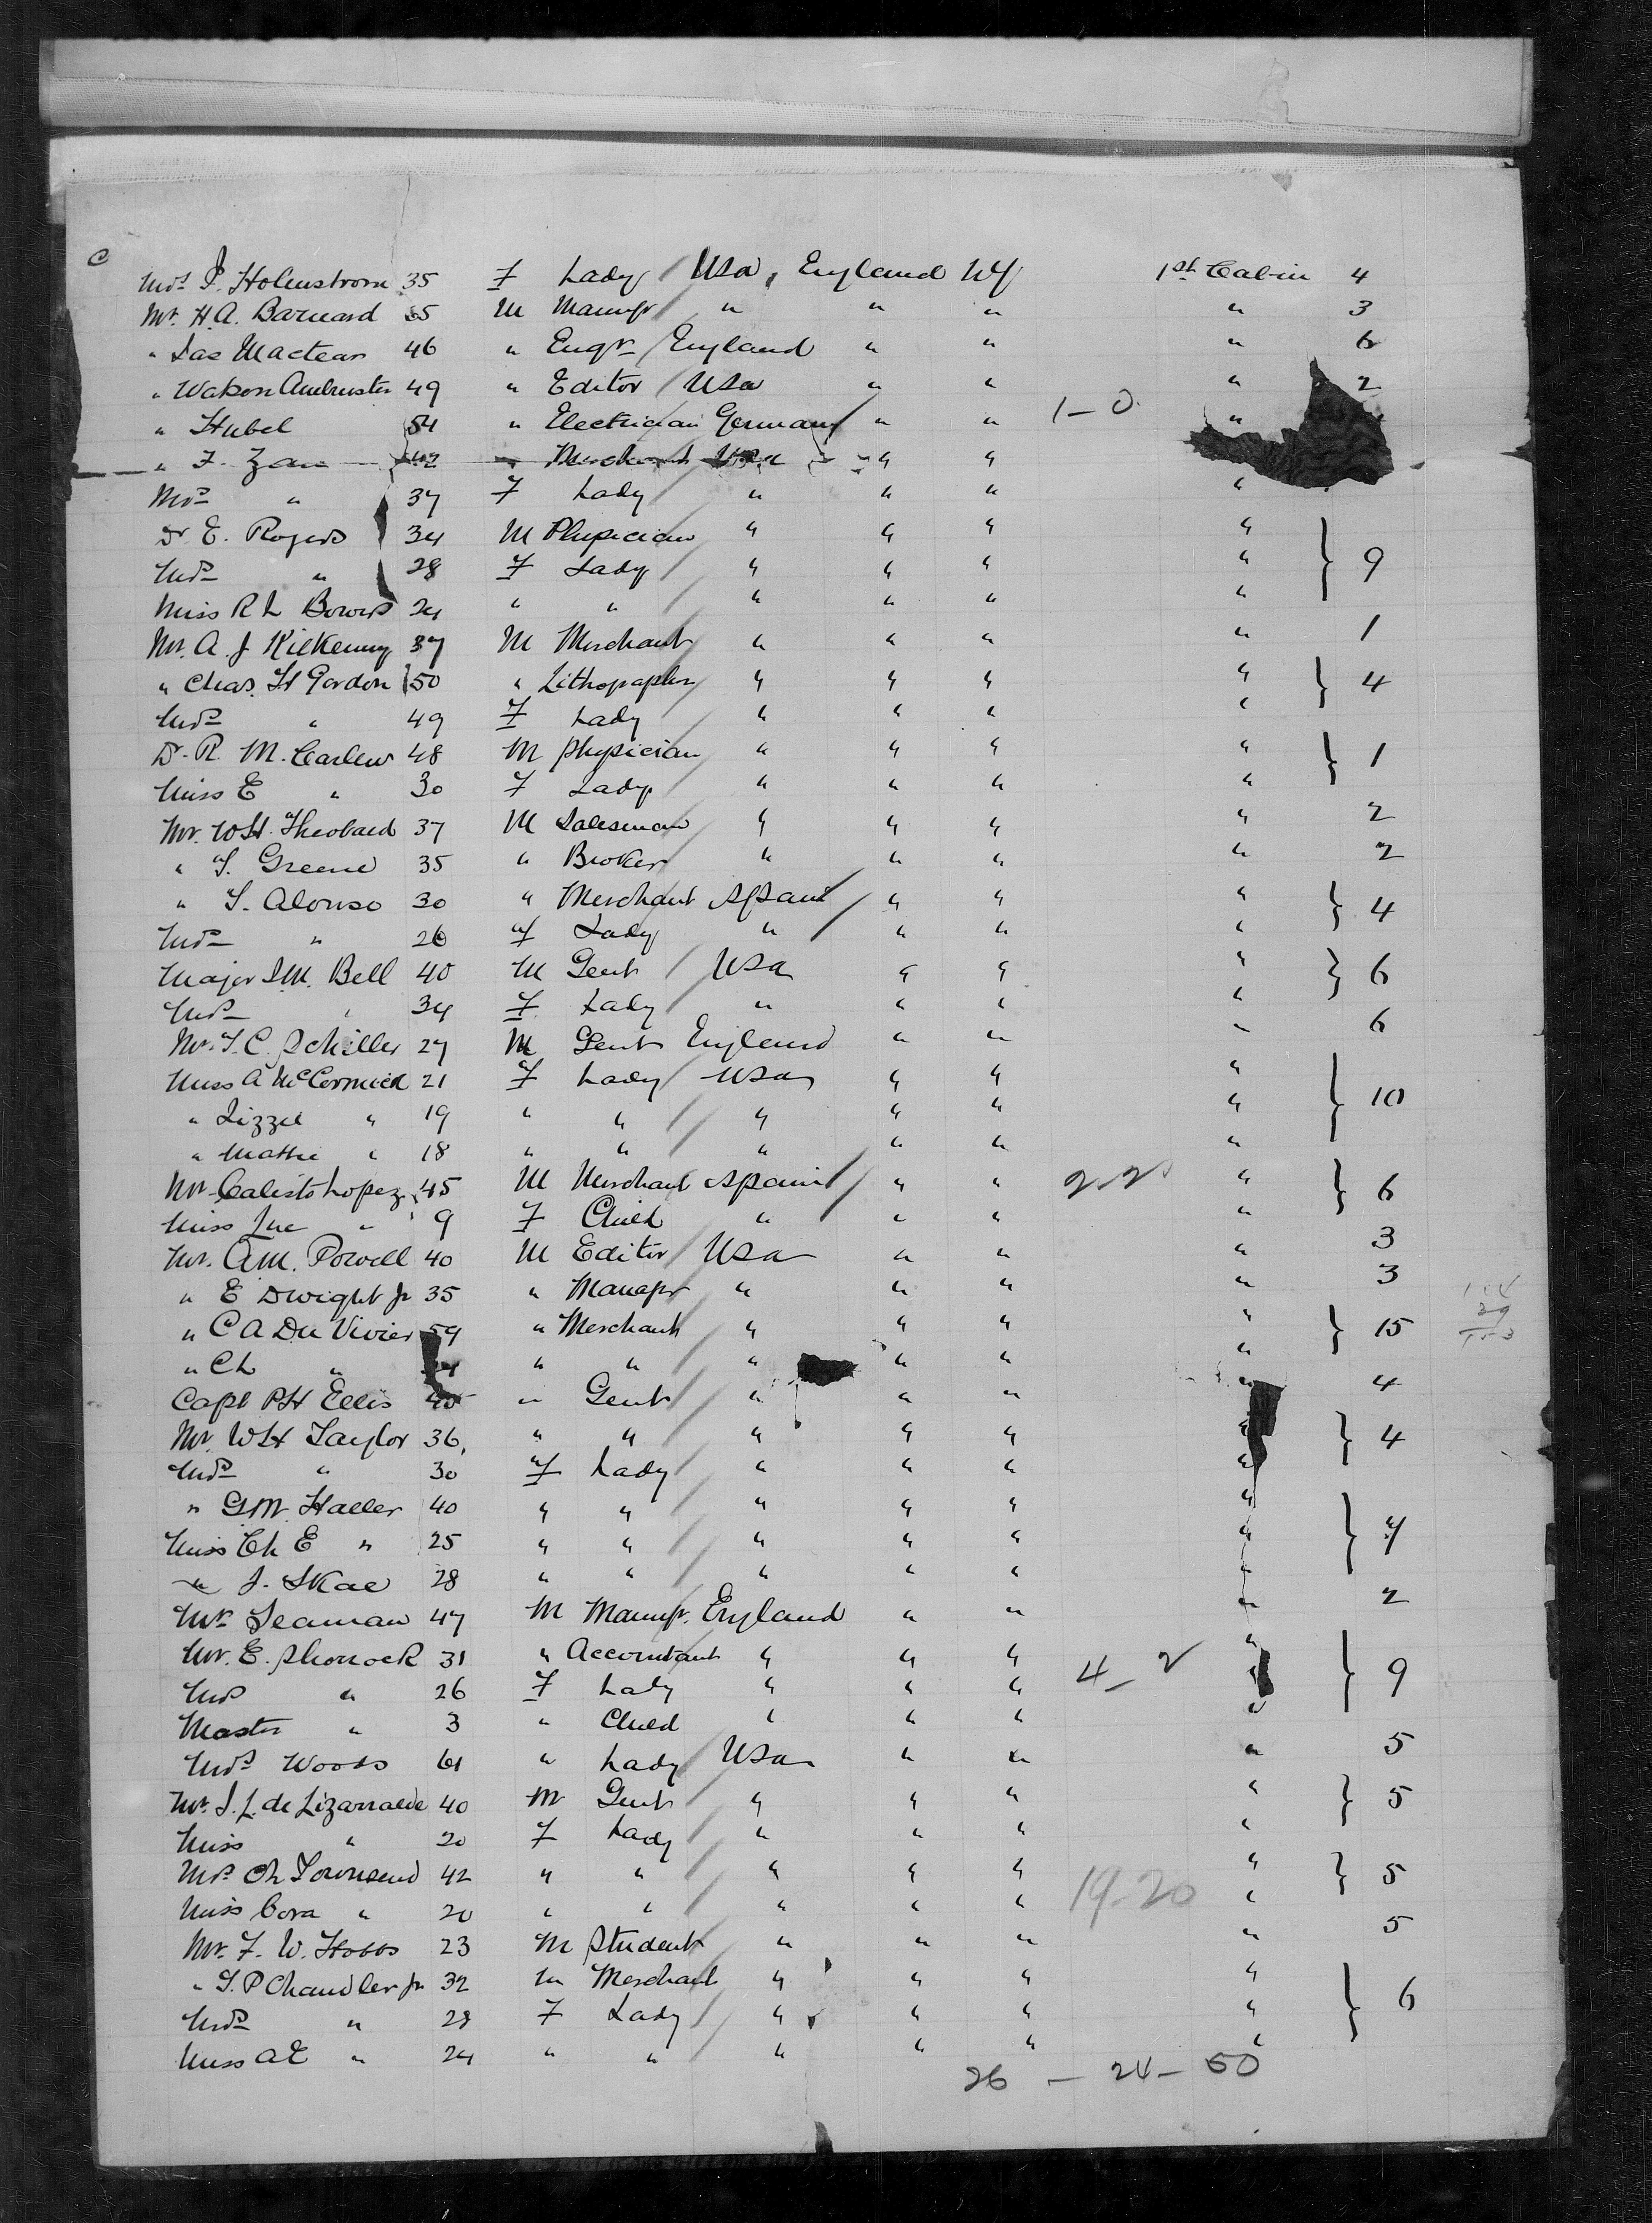 C
Mrs P. Holmstrom 35 F Lady USA, England NY 1st Cabin 4
Mr. H.A. Barnard M Manufr " " " " 3
" Jas Mactear 46 " Engr England " " " 6
" Watson Ambruster 49 " Editor USA " " " 2
" Hubel 54 " Electrician Germany " " 1-0 "
" F. Zane 42 " Merchant USA " "
Mrs " 37 F Lady " " " "
Dr E. Rogers 34 M Physician " " " "
Mrs " 28 F Lady " " " " 9
Miss R L Bowers 24 " " " " " "
Mr. A. J Kilkenny 37 M Merchant " " " " 1
" Chas. H Gordon 50 " Lithographer " " " " 4
Mrs " 49 F Lady " " " "
Dr. R. M. Carlew 48 M Physician " " " " 1
Miss E " 30 F Lady " " " "
Mr. W.H. Theobald 37 M Salesman " " " " 2
" T. Greene 35 " Broker " " " " 2
" T. Alonso 30 " Merchant Spain " " " 4
Mrs " 26 F Lady " " " "
Major J.M. Bell 40 M Gent USA " " " 6
Mrs " 34 F Lady " " " "
Mr. F. C. Schiller 27 M Gent England " " " 6
Miss A McCormick 21 F Lady USA " " "
" Lizzie " 19 " " " " " " 10
" Mattie " 18 " " " " " "
Mr. Calisto Lopez 45 M Merchant Spain " " 2-2 " 6
Miss " 9 F Child " " " "
Mr. A.M. Powell 40 M Editor USA " " " 3
" E Dwight Jr 35 " Manafr " " " " 3
" C A Du Vivier 59 " Merchant " " " " 15
" Ch " " " " " " "
Capt P H Ellis 45 " Gent " " " " 4
Mr. W H Taylor 36 " " " " " " 4
Mrs " 30 F Lady " " " "
" G.M. Haller 40 " " " " " "
Miss Ch E " 25 " " " " " " 7
" J. Skae 28 " " " " " "
Mr. Seaman 47 M Manufr. England " " " 2
Mr. E. Shorrock 31 " Accountant " " " "
Mrs " 26 F Lady " " " 4-2 " 9
Master " 3 " Child " " " "
Mrs Woods 61 " Lady USA " " " 5
Mr. J. L. de Lizarralde 40 M Gent " " " " 5
Miss " 20 F Lady " " " "
Mrs Ch Townsend 42 " " " " " 19-20 " 5
Miss Cora " 20 " " " " " "
Mr. F. W. Hobbs 23 M Student " " " " 5
" T. P Chandler Jr 32 M Merchant " " " "
Mrs " 28 F Lady " " " " 6
Miss A E " 24 " " " " " "
26 - 24 - 50